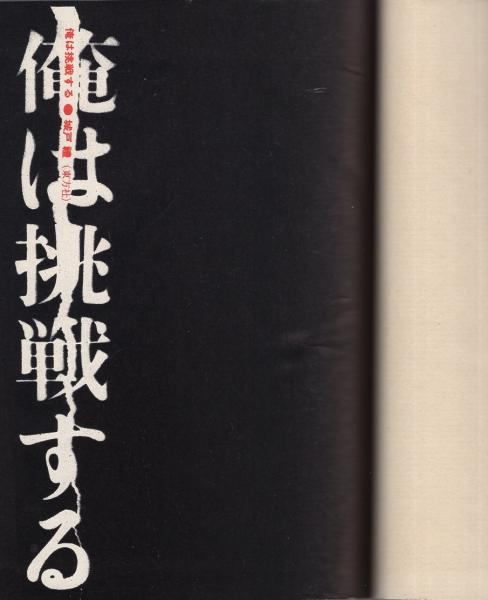 俺は挑戦する
俺は挑戦する●城戸禮（東方社）